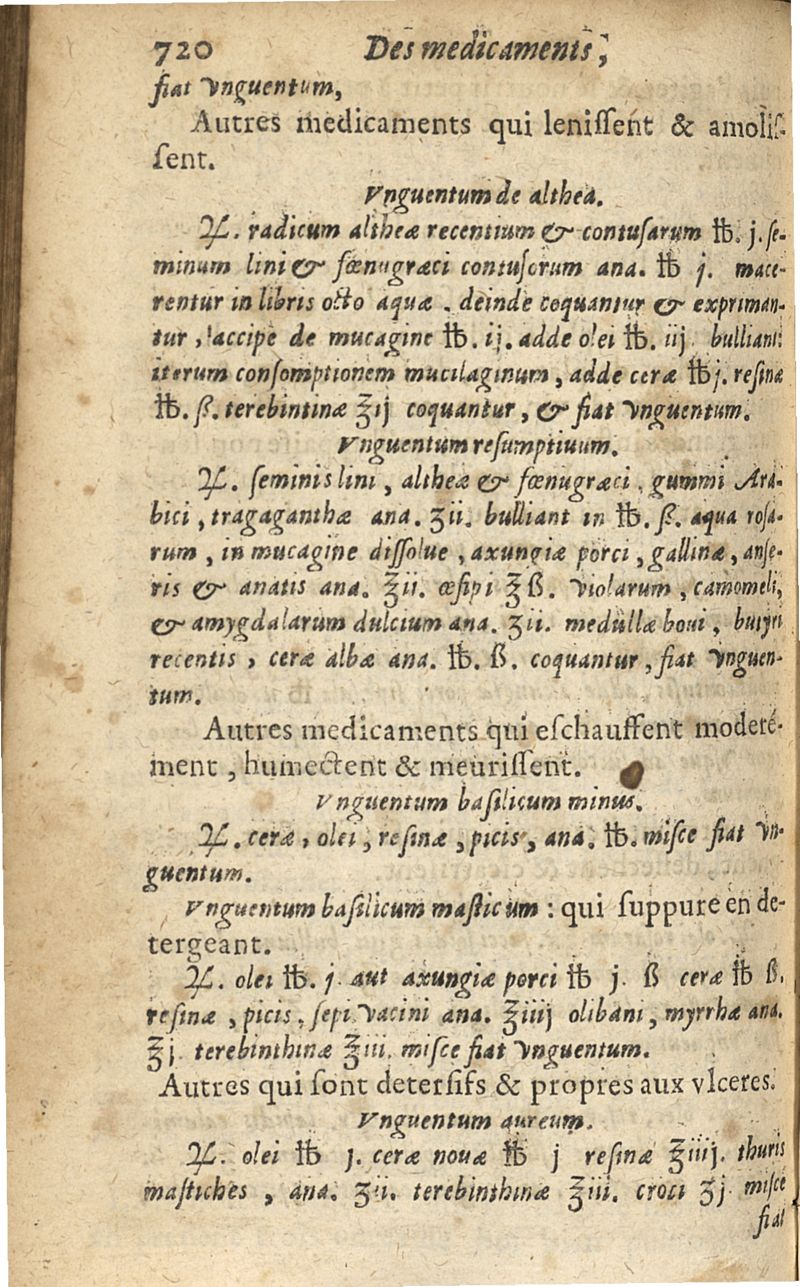 720 Des medicaments,
fiat vnguentum,
Autres medicaments qui lenissent & amolis-
sent.
Vnguentum de althea.
♃. radicum altheæ recentium & contusarum ℔. j. se-
minum lini & fœnugræci contusorum ana. ℔ j. mace-
rentur in libris octo aquæ, deinde coquantur & expriman-
tur, accipe de mucagine ℔. ij. adde olei ℔. iij bulliant
iterum consomptionem mucilaginum, adde ceræ ℔ j. resinæ
℔. ß. terebintinæ ℥ij coquantur, & fiat vnguentum.
Vnguentum resumptiuum.
♃. seminis lini, altheæ & fœnugræci, gummi Ara-
bici, tragaganthæ ana. ʒii. bulliant in ℔. ß. aqua rosa-
rum, in mucagine dissolue, axungiæ porci, gallinæ, anse-
ris & anatis ana. ℥ii. œsipi ℥ß. violarum, camomeli,
& amygdalarum dulcium ana. ʒii. medullæ boui, butyri
recentis, ceræ albæ ana. ℔. ß. coquantur, fiat vnguen-
tum.
Autres medicaments qui eschauffent moderé-
ment, humectent & meurissent.
Vnguentum basilicum minus.
♃. ceræ, olei, resinæ, picis, ana. ℔. misce fiat vn-
guentum.
Vnguentum basilicum masticum : qui suppure en de-
tergeant.
♃. olei ℔. j. aut axungiæ porci ℔ j. ß ceræ ℔ ß.
resinæ, picis, sepi vacini ana. ℥iiij olibani, myrrhæ ana.
℥j. terebinthinæ ℥iii. misce fiat vnguentum.
Autres qui sont detersifs & propres aux vlceres.
Vnguentum aureum.
♃. olei ℔ j. ceræ nouæ ℔ j resinæ ℥iiij. thuris
mastiches, ana. ʒii. terebinthinæ ℥iii. croci ʒj misce
fiat